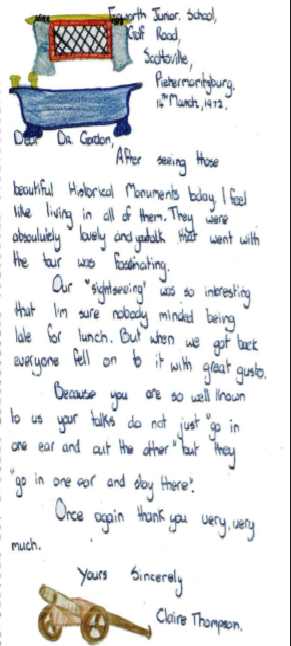 Epworth Junior School,
Golf Road,
Scottsville,
Pietermaritzburg.
14th March, 1972.
Dear Dr. Gordon,
After seeing those
beautiful Historical Monuments today I feel
like living in all of them. They were
absolutely lovely and your talk that went with
the tour was fascinating.
Our "sightseeing" was so interesting
that I'm sure nobody minded being
late for lunch. But when we got back
everyone fell on to it with great gusto.
Because you are so well known
to us your talks do not just "go in
one ear and out the other" but they
"go in one ear and stay there".
Once again thank you very, very
much.
Yours Sincerely
Claire Thompson.